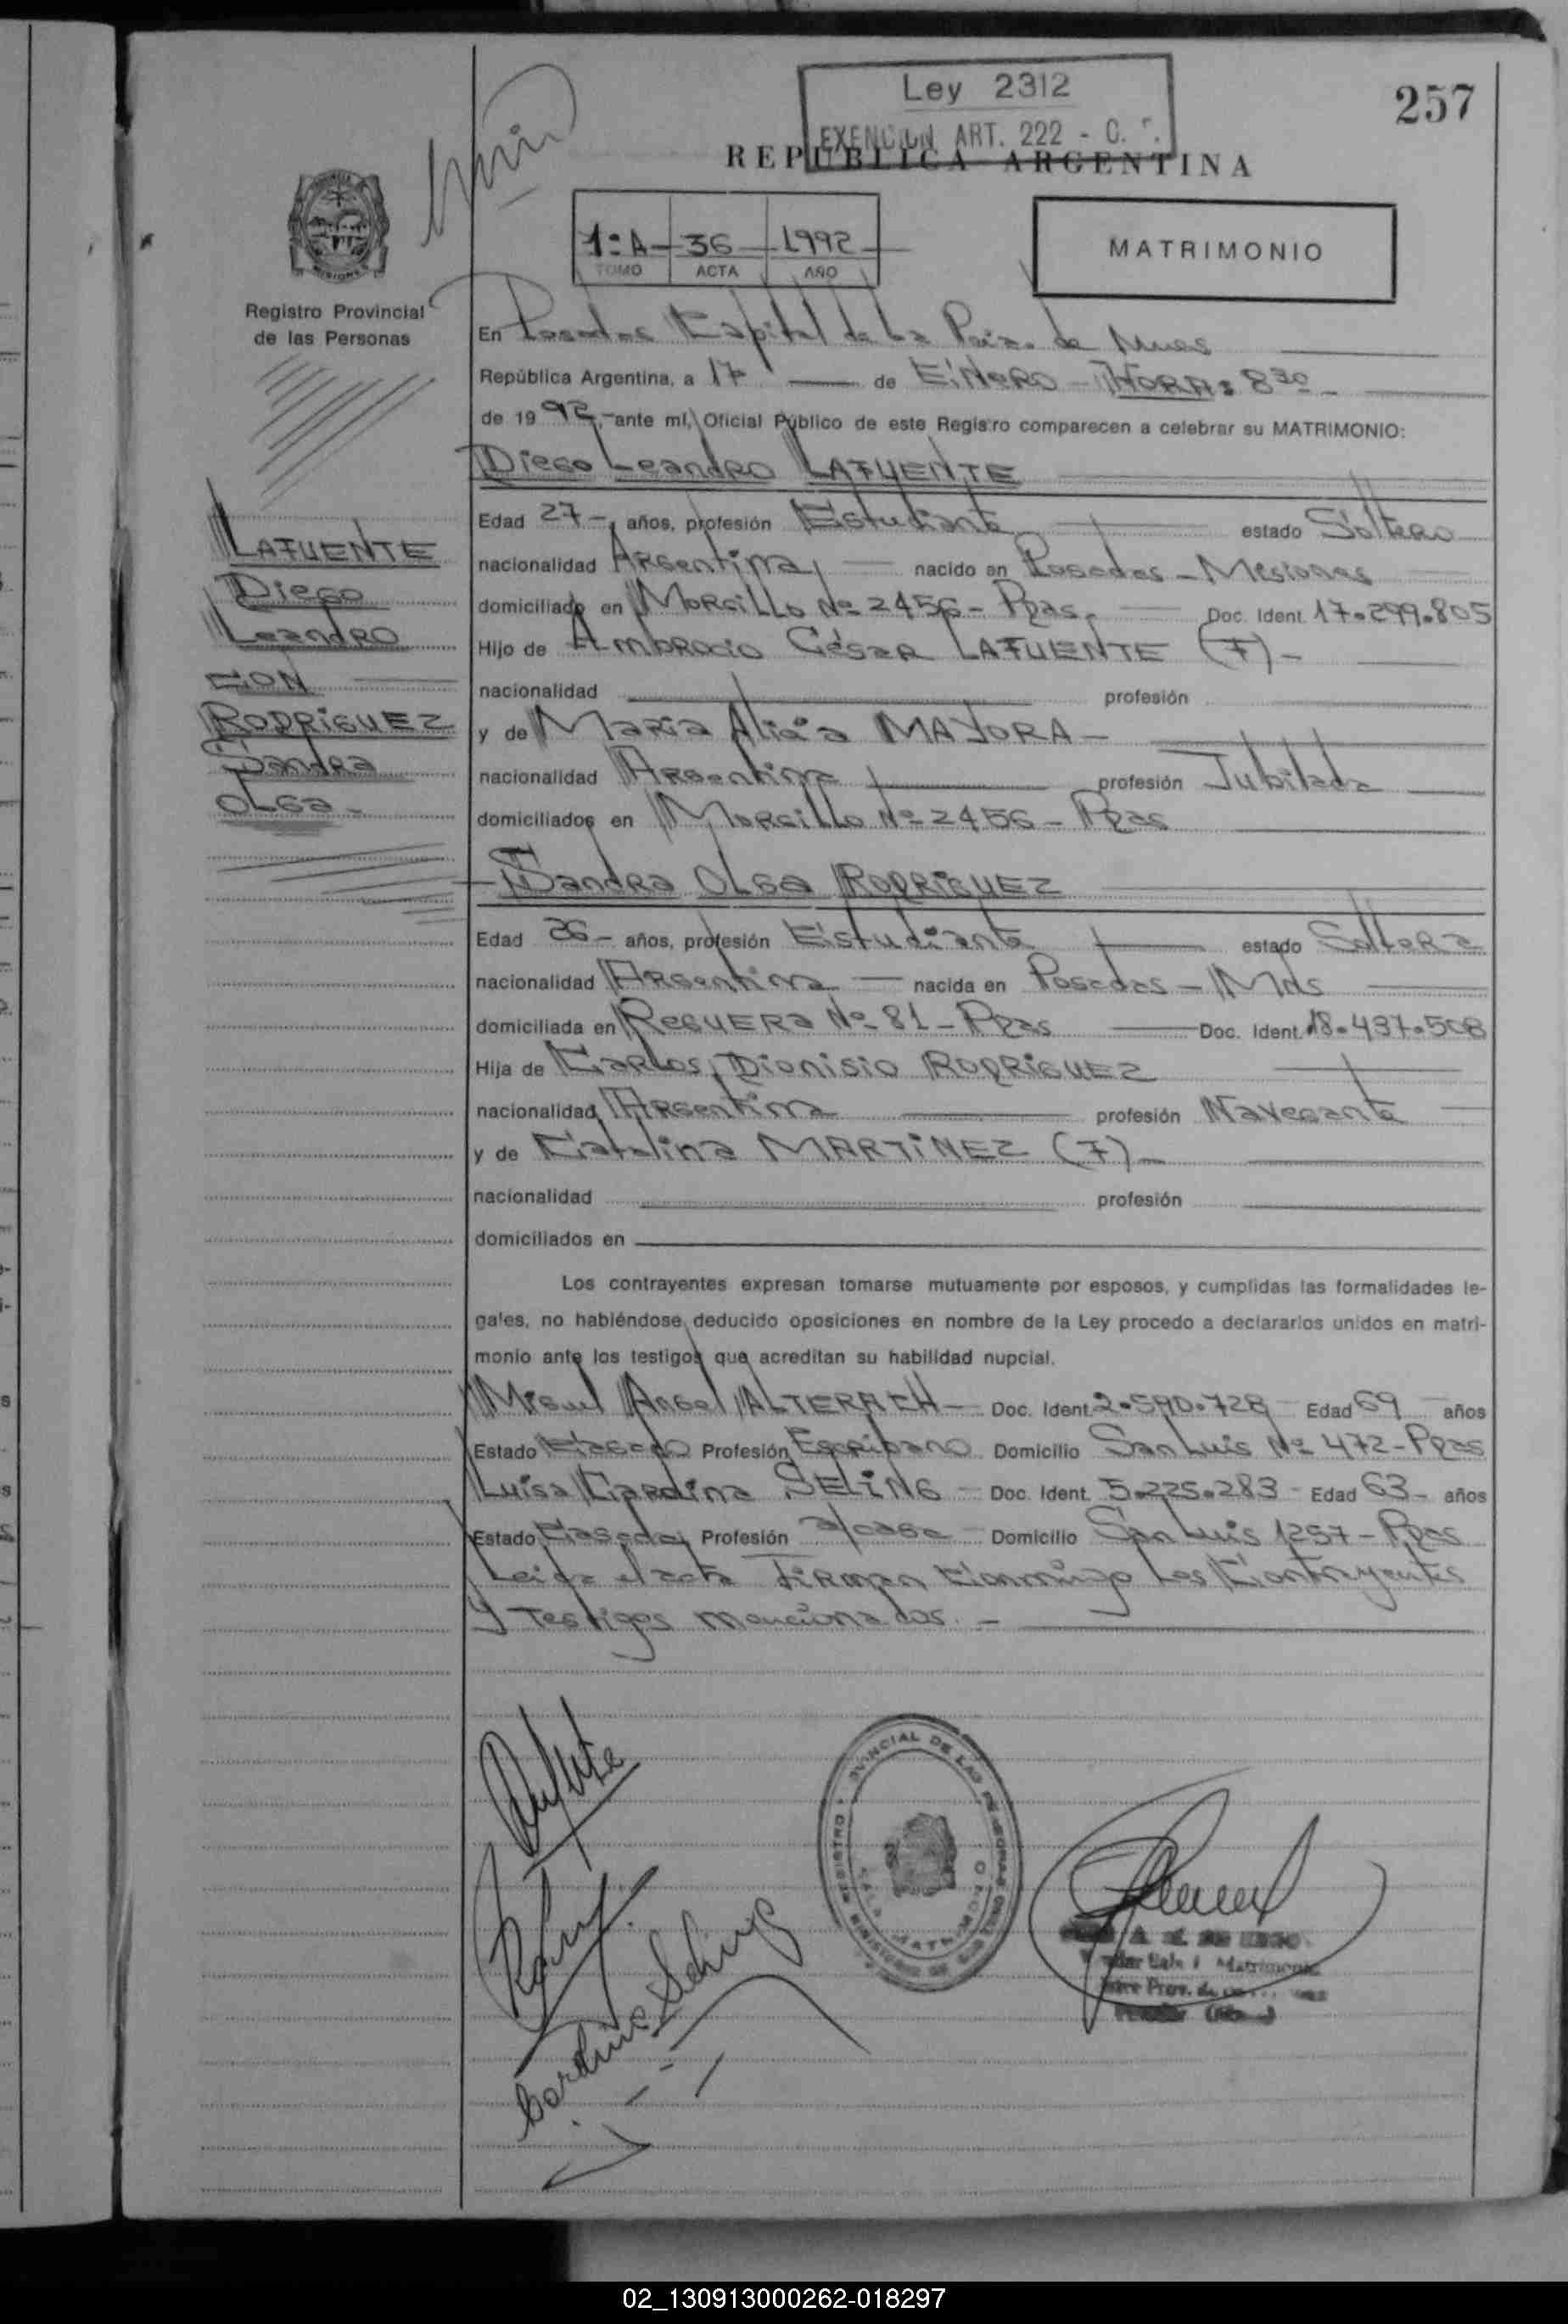 257
Ley 2312
EXENCION ART. 222 - C.
REPUBLICA ARGENTINA
1º A 36 1992
TOMO ACTA AÑO
MATRIMONIO
MISIONES
Registro Provincial
de las Personas
En Posadas Capital de la Pcia. de Mnes
República Argentina, a 17 de ENERO - HORA: 8 30 -
de 19 92,- ante mí, Oficial Público de este Registro comparecen a celebrar su MATRIMONIO:
Diego Leandro LAFUENTE
Edad 27 -, años, profesión Estudiante estado Soltero
nacionalidad Argentina, nacido en Posadas - Misiones
domiciliado en Morcillo Nº 2456 - Pdas. Doc. Ident. 17.299.805
Hijo de Ambrocio César LAFUENTE (F) -
nacionalidad profesión
y de María Alicia MAYORA -
nacionalidad Argentina profesión Jubilada
domiciliados en Morcillo Nº 2456 - Pdas
LAFUENTE
Diego
Leandro
CON
RODRIGUEZ
Sandra
Olga -
Sandra Olga RODRIGUEZ
Edad 26 - años, profesión Estudiante estado Soltera
nacionalidad Argentina nacida en Posadas - Mns
domiciliada en Reguera Nº 81 - Pdas Doc. Ident. 18.437.508
Hija de Carlos Dionisio RODRIGUEZ
nacionalidad Argentina profesión Navegante
y de Catalina MARTINEZ (F) -
nacionalidad profesión
domiciliados en
Los contrayentes expresan tomarse mutuamente por esposos, y cumplidas las formalidades le-
gales, no habiéndose deducido oposiciones en nombre de la Ley procedo a declararlos unidos en matri-
monio ante los testigos que acreditan su habilidad nupcial.
Miguel Angel ALTERACH - Doc. Ident. 2.590.728 - Edad 69 años
Estado Casado Profesión Escribano Domicilio San Luis Nº 472 - Pdas
Luisa Carolina SELING - Doc. Ident. 5.225.283 - Edad 63 - años
Estado Casada, Profesión a/casa - Domicilio San Luis 1257 - Pdas
Leida el acta Firman Conmigo Los Contrayentes
y Testigos mencionados. -
Carolina Seling
REGISTRO PROVINCIAL DE LAS PERSONAS
SALA MATRIMONIO
02_130913000262-018297